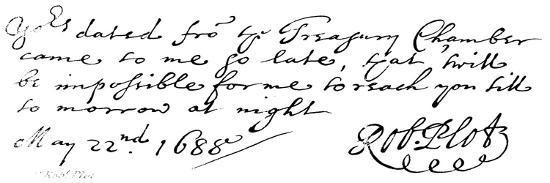 Yoᵘʳˢ dated froˉ yᵉ Treasury Chamber
came to me so late, yat, 'twill
be impossible for me to reach you till
to morrow at night
May 22ⁿᵈ. 1688
Rob. Plot
Robᵗ Plot